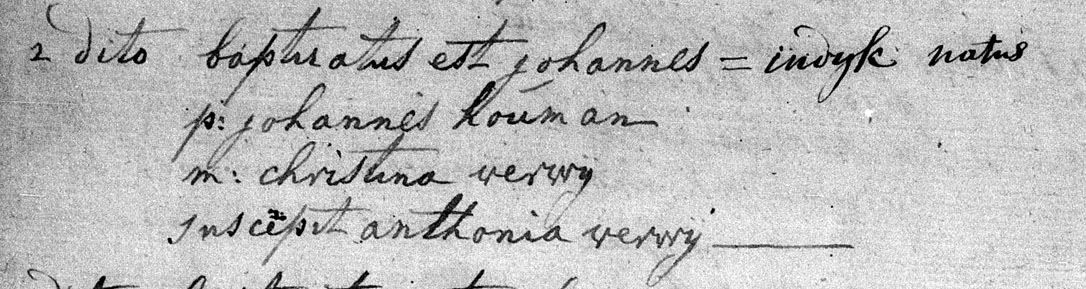 2 dito baptisatus est johannes = indyk natus
p: johannes houman
m: christina verwij
suscepit anthonia verwij